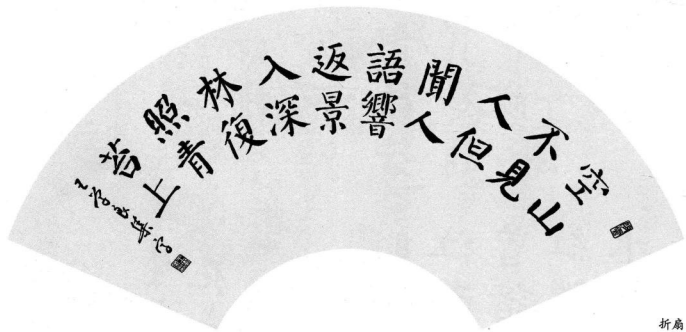 空山
不見
人但
聞人
語響
返景
入深
林復
照青
苔上
折扇